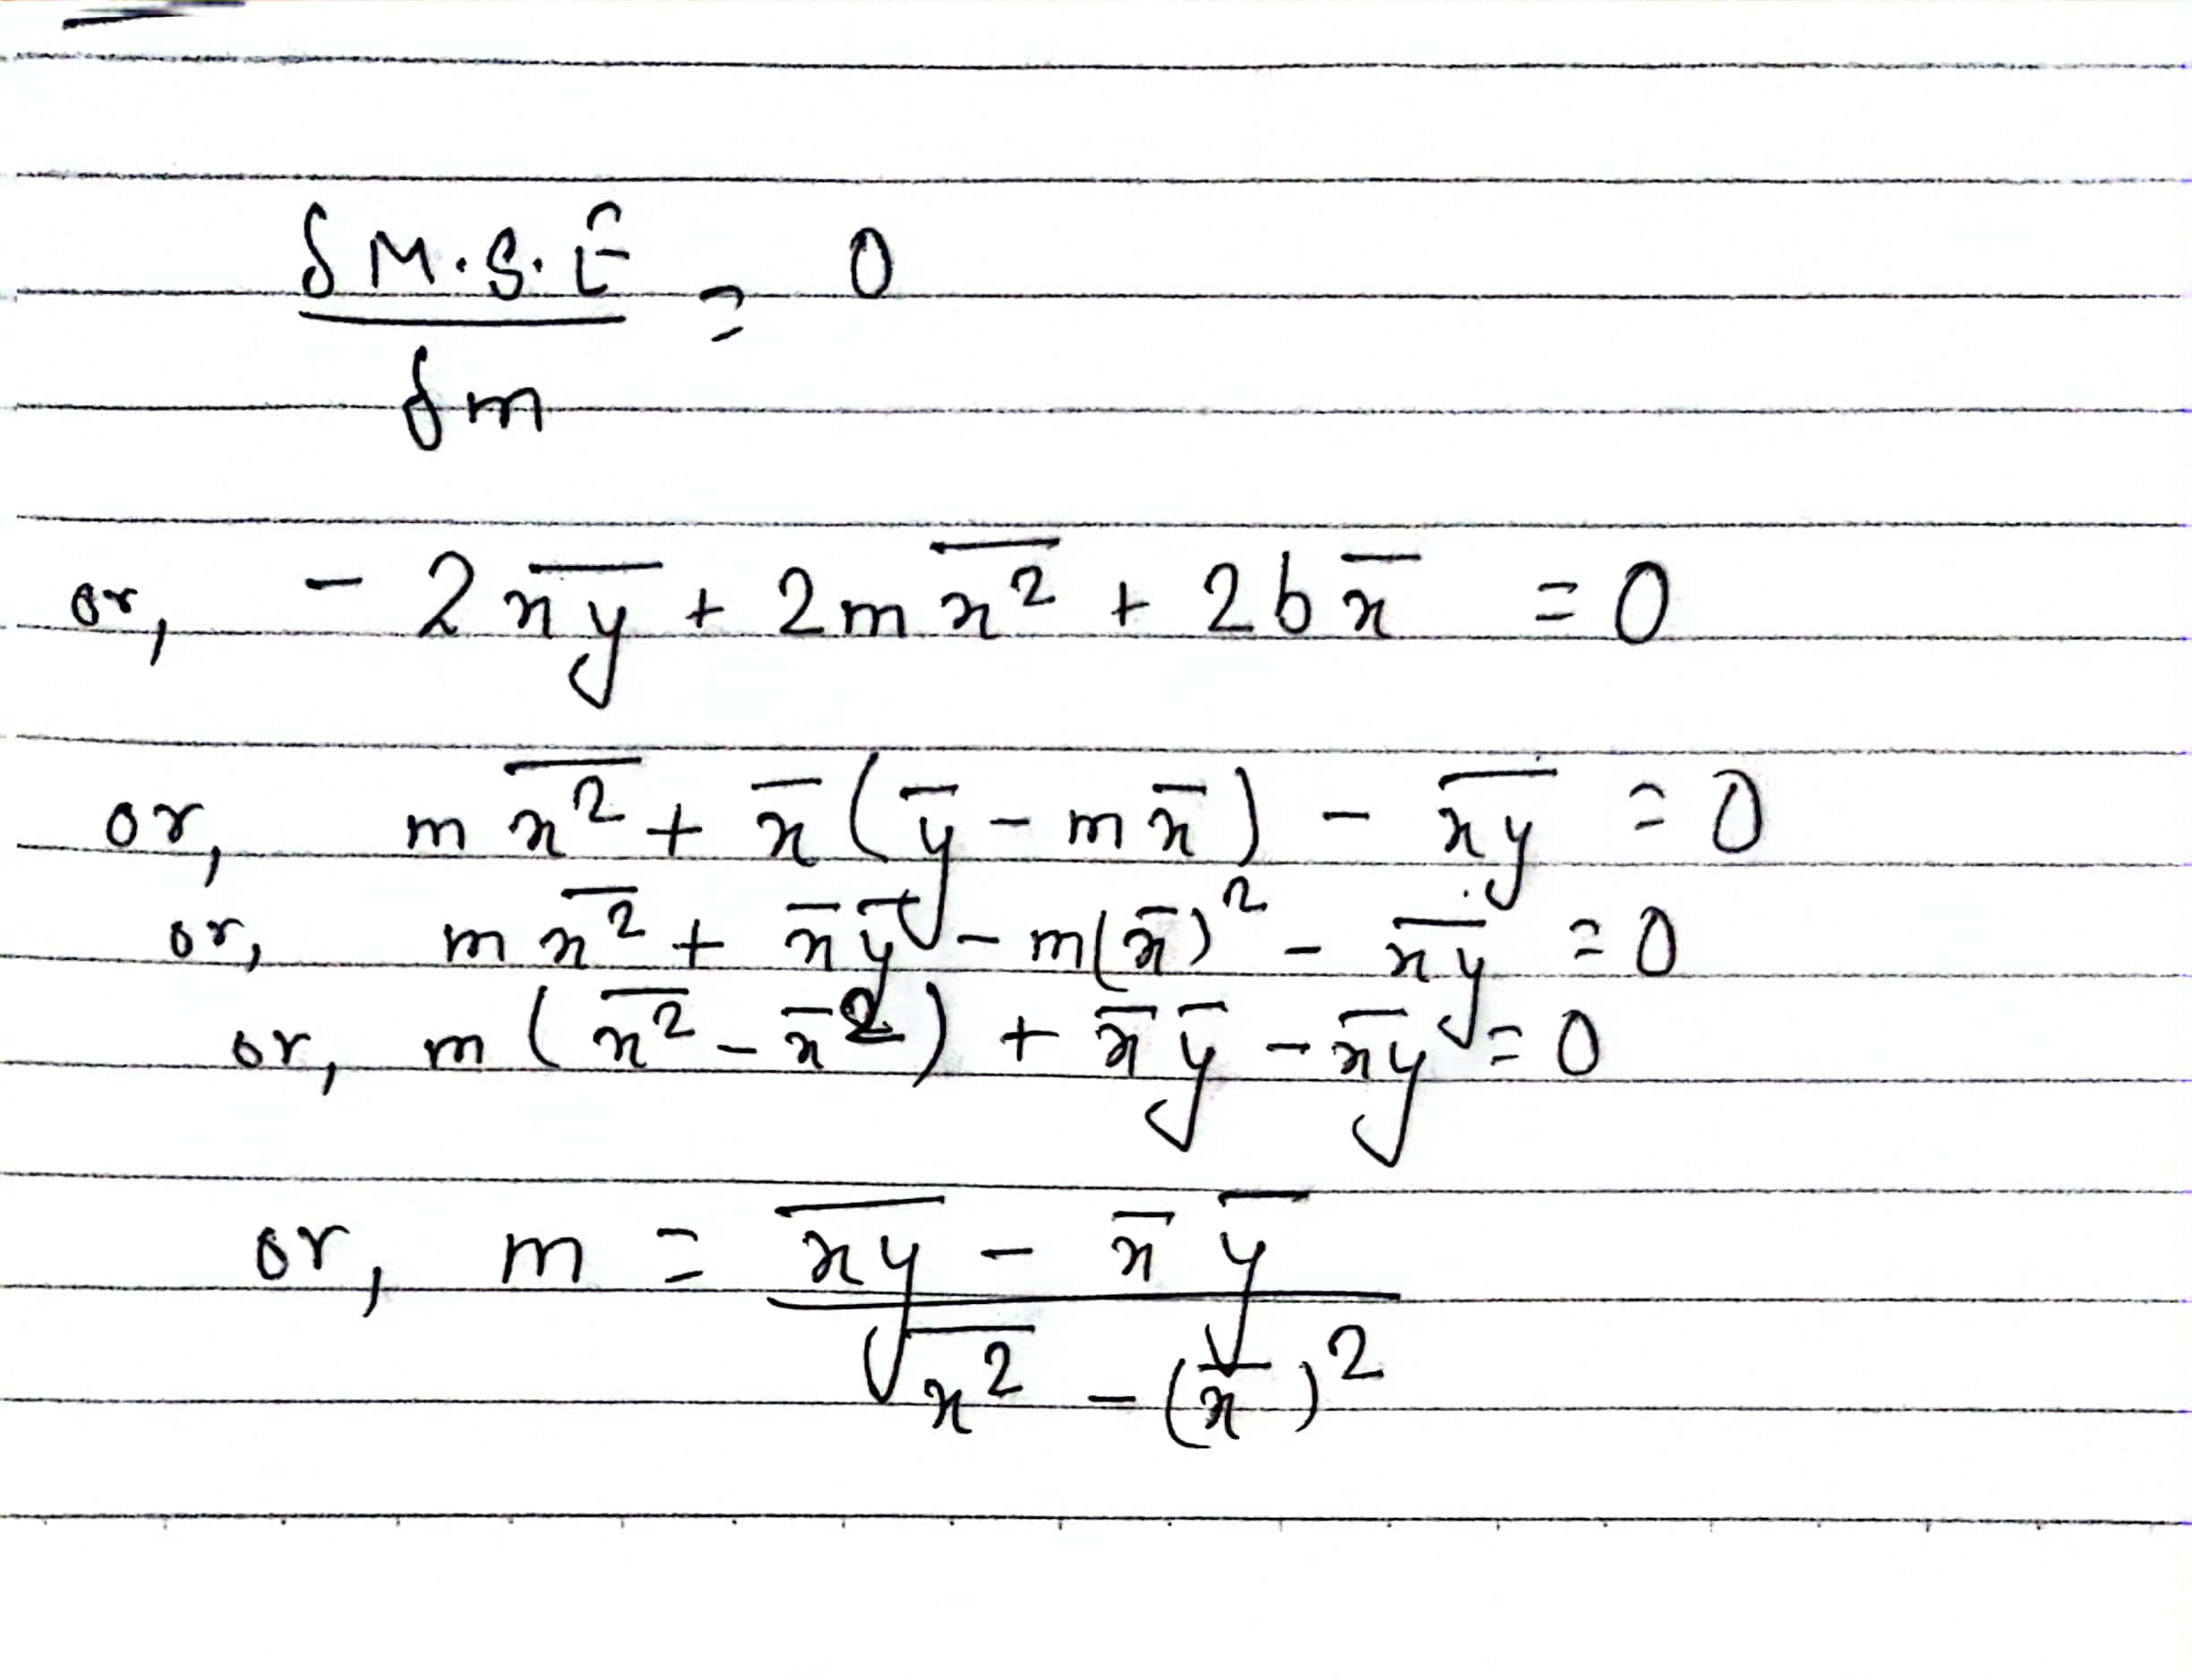 δM.S.E / δm = 0
or, - 2x̅y̅ + 2m x̅²̅ + 2b x̅ = 0
or, m x̅²̅ + x̅ (y̅ - m x̅) - x̅y̅ = 0
or, m x̅²̅ + x̅ y̅ - m(x̅)² - x̅y̅ = 0
or, m ( x̅²̅ - x̅² ) + x̅ y̅ - x̅y̅ = 0
or, m = x̅y̅ - x̅ y̅ / x̅²̅ - (x̅)²